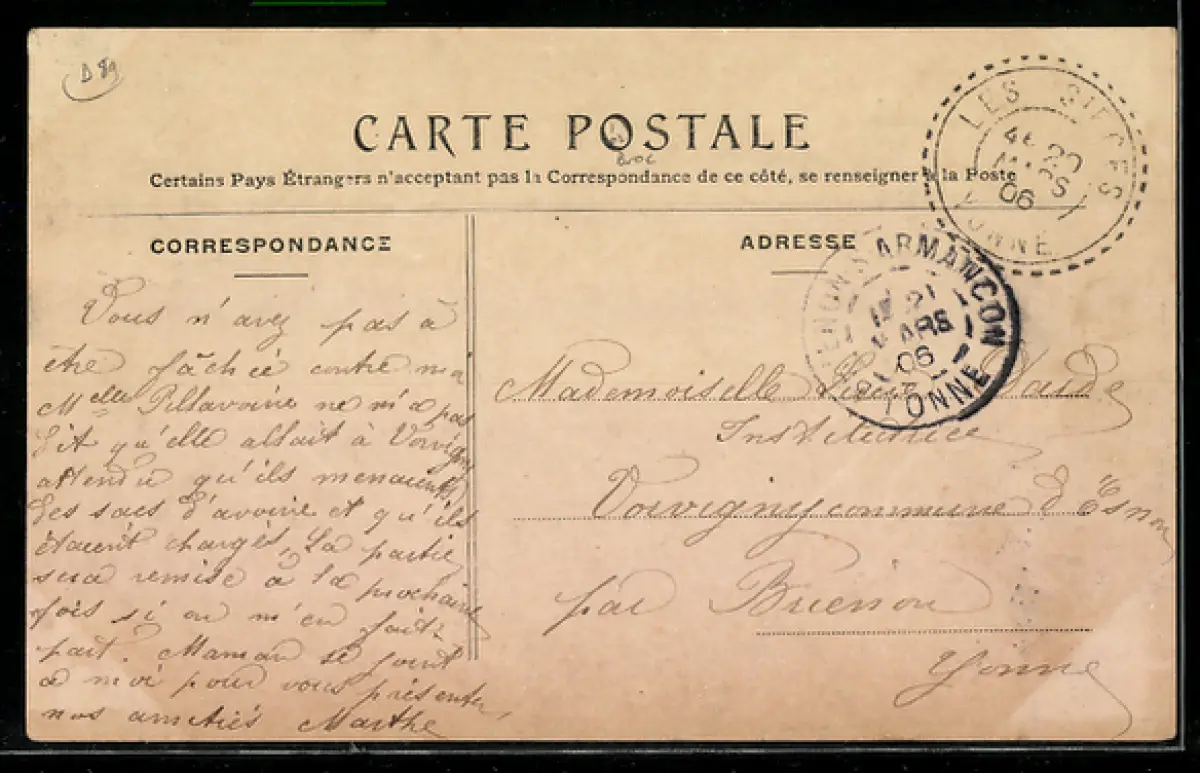 D 89
CARTE POSTALE
Broc
Certains Pays Étrangers n'acceptant pas la Correspondance de ce côté, se renseigner à la Poste
CORRESPONDANCE
Vous n'avez pas à
être fâchée contre moi
Melle Pillavoine ne m'a pas
dit qu'elle allait à Vorvigny
attendu qu'ils menaient
des sacs d'avoine et qu'ils
étaient chargés, La partie
sera remise à la prochaine
fois si on m'en fait
part. Maman se joint
à moi pour vous présenter,
nos amitiés Marthe
ADRESSE
Mademoiselle
Institutrice
Vorvigny commune d'Esnon
par Brienon
Yonne
LES SIEGES
4E 20
MARS
06
YONNE
BRIENON S ARMANCON
21
MARS
06
YONNE